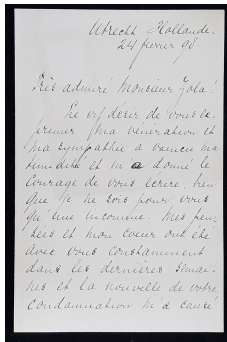 Utrecht Hollande.
24 février 98
Très admiré Monsieur Zola!
Le vif désir de vous ex-
primer ma vénération et
ma sympathie a vaincu ma
timidité et m'a donné le
courage de vous écrire, bien
que je ne sois pour vous
qu'une inconnue. Mes pen-
sées et mon coeur ont été
avec vous constamment
dans les dernières semai-
nes et la nouvelle de votre
condamnation m'a causé